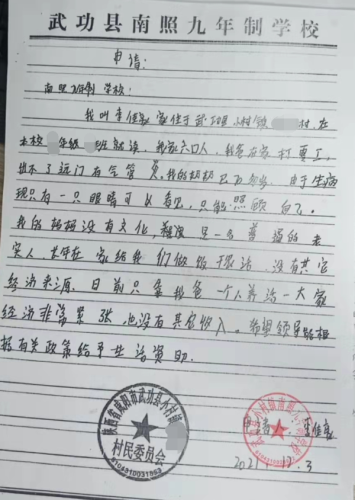 武功县南照九年制学校
申请:
南照九年制学校:
我叫李佳 家住于武功县小村镇 村,在
本校 年级 班就读,我家六口人,我爸在家打零工,
出不了远门有气管炎。我的奶奶已70多岁,由于生病
现只有一只眼睛可以看见,只能照顾自己。
我的妈妈没有文化,是一名普通的老
实人,长年在家给我们做饭 ,没有其它
经济来源。目前只靠我爸一个人养活一大家
经济非常紧张,也没有其它收入。希望领导能根
据有关政策给予生活资助。
申请者 李佳
2021.12.3
陕西省咸阳市武功县小村镇
村民委员会